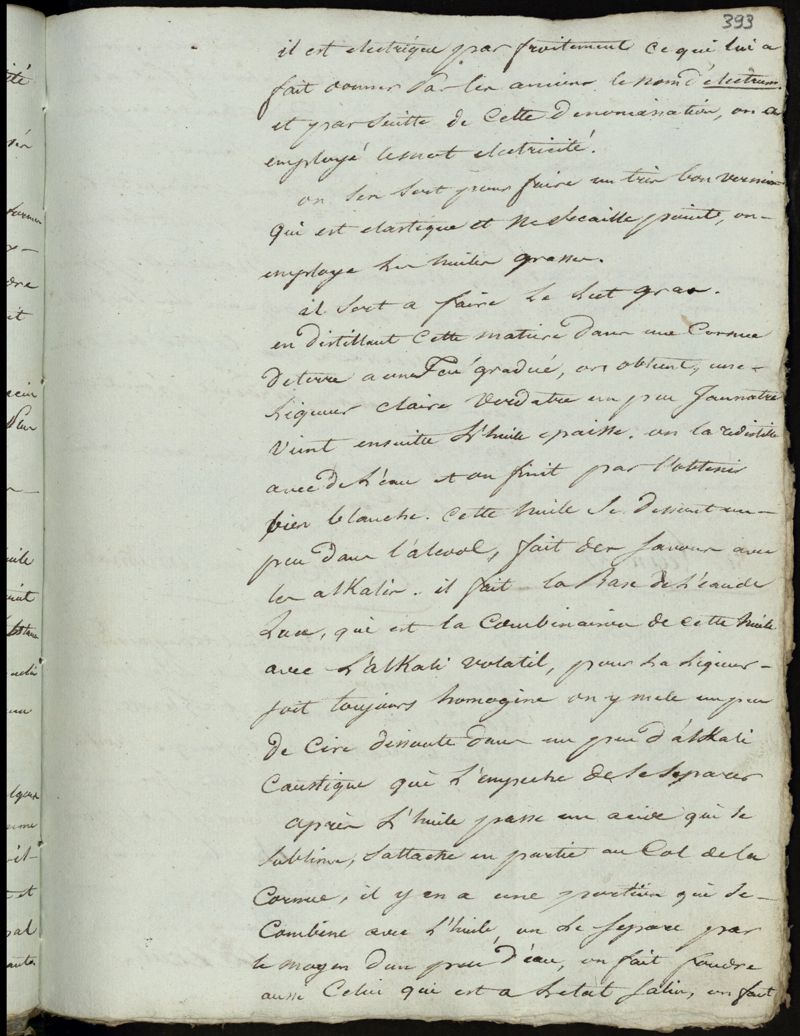 393
il est electrique par frottement ce qui lui a
fait donner par les anciens le nom d'electrum.
et par suitte de cette denomination, on a
employé le mot electricité.
on s'en sert pour faire un tres bon vernis
qui est elastique et ne secaille points, on
employe les huiles grasses.
il sert a faire le lut gras.
en distillant cette matiere dans une cornue
de terre a un feu gradué, on obtient, une
liqueur claire verdatre un peu jaunatre
vient ensuitte l'huile epaisse. on la redistille
avec de l'eau et on finit par l'obtenir
bien blanche. cette huile se dissout un
peu dans l'alcool, fait des savons avec
les alkalis. il fait la base de l'eau de
luce, qui est la combinaison de cette huile
avec l'alkali volatil, pour la liqueur
soit toujours homogene on y mele un peu
de cire dissoute dans un peu d'alkali
caustique qui l'empeche de se separer
après l'huile passe un acide qui se
sublime, s'attache en partie au col de la
cornue, il y en a une portion qui se
combine avec l'huile on le separe par
le moyen d'un peu d'eau, on fait foudre
aussi celui qui est a l'etat salin, on fait